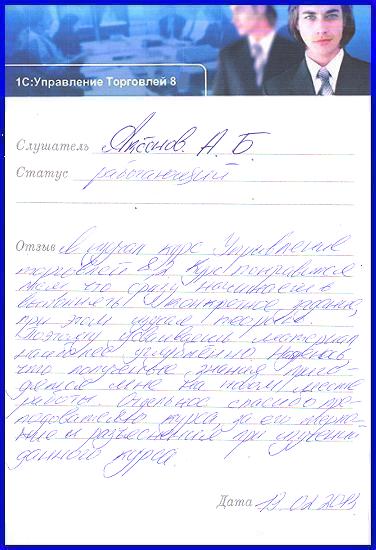 1С:Управление Торговлей 8
Слушатель Аксёнов. А. Б
Статус работающий
Отзыв Я изучал курс Управление
торговлей 8.2. Курс понравился
тем что сразу начинаешь
выполнять конкретное задание,
при этом изучая теорию.
Поэтому усваиваеш материал
наиболее углубленно. Надеюсь,
что полученые знания приго-
дятся мне на новом месте
работы. Отдельное спасибо пре-
подователю курса, за его терпе-
ние и разъеснения при изучении
данного курса.
Дата 19 02 2013